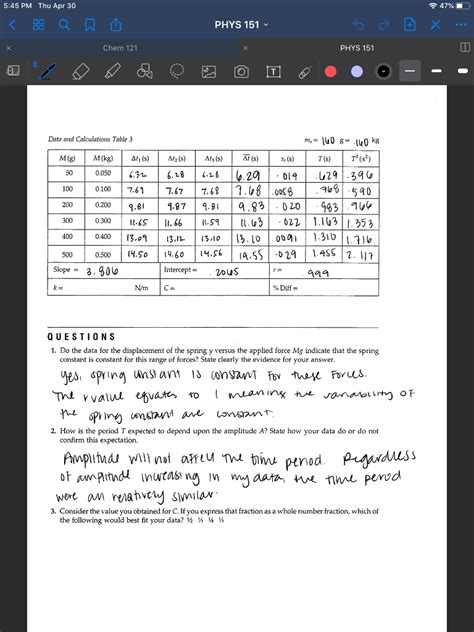 5:45 PM Thu Apr 30 47%
PHYS 151
Chem 121 PHYS 151
Data and Calculations Table 3 ms = 160 g = .160 kg
M (g) M (kg) Δt1 (s) Δt2 (s) Δt3 (s) Δt (s) s1 (s) T (s) T² (s²)
50 0.050 6.32 6.28 6.28 6.29 .019 .629 .396
100 0.100 7.69 7.67 7.68 7.68 .0058 .768 .590
200 0.200 9.81 9.87 9.81 9.83 .020 .983 .966
300 0.300 11.65 11.66 11.59 11.63 .022 1.163 1.353
400 0.400 13.09 13.12 13.10 13.10 .0091 1.310 1.716
500 0.500 14.50 14.60 14.56 14.55 .029 1.455 2.117
Slope = 3.806 Intercept = .2065 r = .999
k = N/m C = % Diff =
QUESTIONS
1. Do the data for the displacement of the spring y versus the applied force Mg indicate that the spring
constant is constant for this range of forces? State clearly the evidence for your answer.
yes, spring constant is constant for these forces.
The r value equates to 1 meaning the variability of
the spring constant are constant.
2. How is the period T expected to depend upon the amplitude A? State how your data do or do not
confirm this expectation.
Amplitude will not affect the time period. Regardless
of amplitude increasing in my data, the time period
were all relatively similar.
3. Consider the value you obtained for C. If you express that fraction as a whole number fraction, which of
the following would best fit your data? ½ ⅓ ¼ ⅕